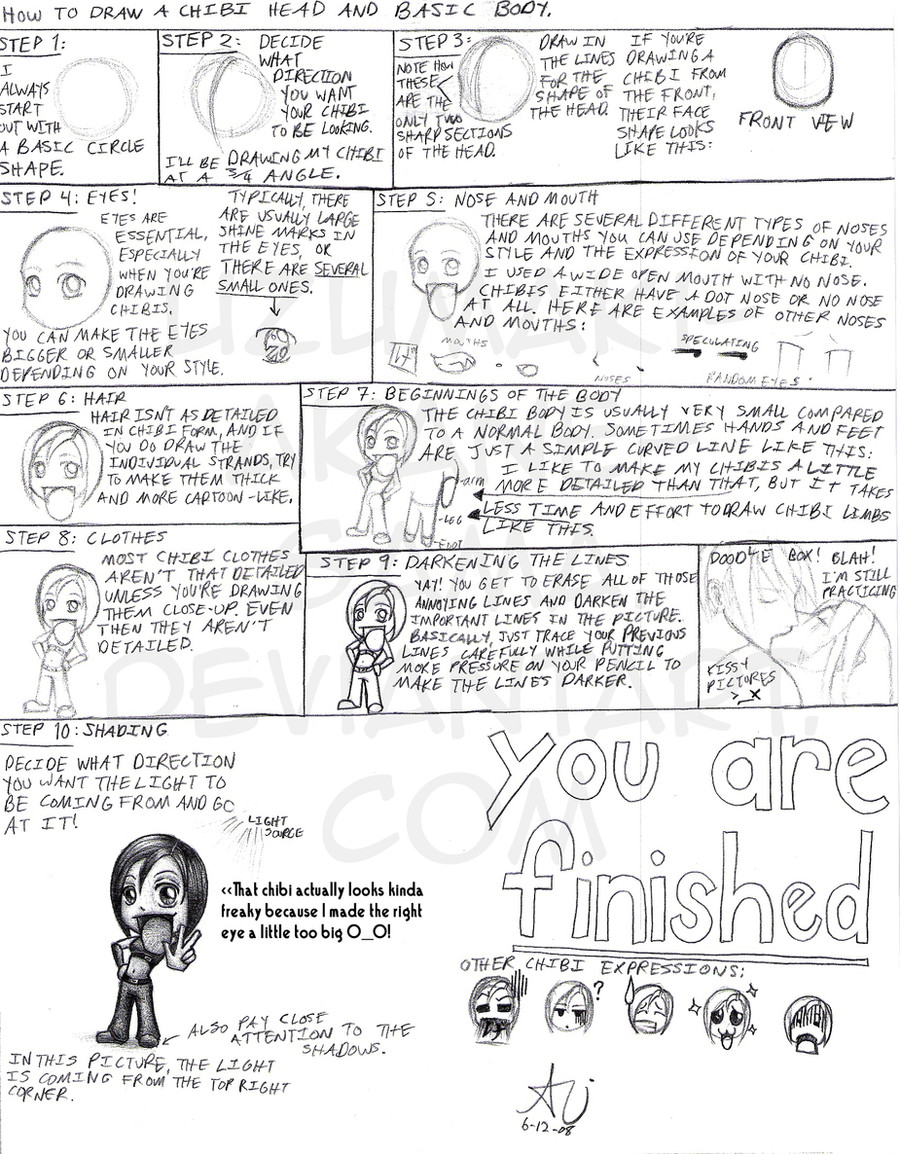 HOW TO DRAW A CHIBI HEAD AND BASIC BODY.
STEP 1:
I
ALWAYS
START
OUT WITH
A BASIC CIRCLE
SHAPE.
STEP 2:
DECIDE
WHAT
DIRECTION
YOU WANT
YOUR CHIBI
TO BE LOOKING.
I'LL BE DRAWING MY CHIBI
AT A 3/4 ANGLE.
STEP 3:
NOTE HOW
THESE
ARE THE
ONLY TWO
SHARP SECTIONS
OF THE HEAD.
DRAW IN
THE LINES
FOR THE
SHAPE OF
THE HEAD.
IF YOU'RE
DRAWING A
CHIBI FROM
THE FRONT,
THEIR FACE
SHAPE LOOKS
LIKE THIS:
FRONT VIEW
STEP 4: EYES!
EYES ARE
ESSENTIAL,
ESPECIALLY
WHEN YOU'RE
DRAWING
CHIBIS.
YOU CAN MAKE THE EYES
BIGGER OR SMALLER
DEPENDING ON YOUR STYLE.
TYPICALLY, THERE
ARE USUALLY LARGE
SHINE MARKS IN
THE EYES, OR
THERE ARE SEVERAL
SMALL ONES.
STEP 5: NOSE AND MOUTH
THERE ARE SEVERAL DIFFERENT TYPES OF NOSES
AND MOUTHS YOU CAN USE DEPENDING ON YOUR
STYLE AND THE EXPRESSION OF YOUR CHIBI.
I USED A WIDE OPEN MOUTH WITH NO NOSE.
CHIBIS EITHER HAVE A DOT NOSE OR NO NOSE
AT ALL. HERE ARE EXAMPLES OF OTHER NOSES
AND MOUTHS:
MOUTHS
NOSES
SPECULATING
RANDOM EYES
STEP 6: HAIR
HAIR ISN'T AS DETAILED
IN CHIBI FORM, AND IF
YOU DO DRAW THE
INDIVIDUAL STRANDS, TRY
TO MAKE THEM THICK
AND MORE CARTOON-LIKE.
STEP 7: BEGINNINGS OF THE BODY
THE CHIBI BODY IS USUALLY VERY SMALL COMPARED
TO A NORMAL BODY. SOMETIMES HANDS AND FEET
ARE JUST A SIMPLE CURVED LINE LIKE THIS:
I LIKE TO MAKE MY CHIBIS A LITTLE
MORE DETAILED THAN THAT, BUT IT TAKES
LESS TIME AND EFFORT TO DRAW CHIBI LIMBS
LIKE THIS.
-ARM
-LEG
-FOOT
STEP 8: CLOTHES
MOST CHIBI CLOTHES
AREN'T THAT DETAILED
UNLESS YOU'RE DRAWING
THEM CLOSE-UP. EVEN
THEN THEY AREN'T
DETAILED.
STEP 9: DARKENING THE LINES
YAY! YOU GET TO ERASE ALL OF THOSE
ANNOYING LINES AND DARKEN THE
IMPORTANT LINES IN THE PICTURE.
BASICALLY, JUST TRACE YOUR PREVIOUS
LINES CAREFULLY WHILE PUTTING
MORE PRESSURE ON YOUR PENCIL TO
MAKE THE LINES DARKER.
DOODLE BOX! BLAH!
I'M STILL
PRACTICING
KISSY
PICTURES
>_X
STEP 10: SHADING
DECIDE WHAT DIRECTION
YOU WANT THE LIGHT TO
BE COMING FROM AND GO
AT IT!
LIGHT
SOURCE
<<That chibi actually looks kinda
freaky because I made the right
eye a little too big O_O!
ALSO PAY CLOSE
ATTENTION TO THE
SHADOWS.
IN THIS PICTURE, THE LIGHT
IS COMING FROM THE TOP RIGHT
CORNER.
you are
finished
OTHER CHIBI EXPRESSIONS:
?
6-12-08
DEVIANTART.
COM